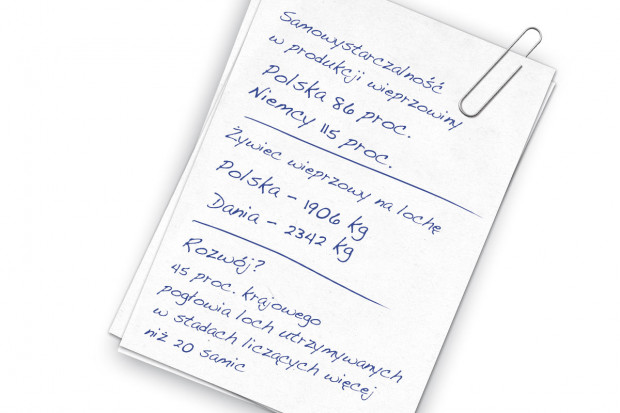 Samowystarczalność
w produkcji wieprzowiny
Polska 86 proc.
Niemcy 115 proc.
Żywiec wieprzowy na lochę
Polska – 1906 kg
Dania – 2342 kg
Rozwój?
45 proc. krajowego
pogłowia loch utrzymywanych
w stadach liczących więcej
niż 20 samic